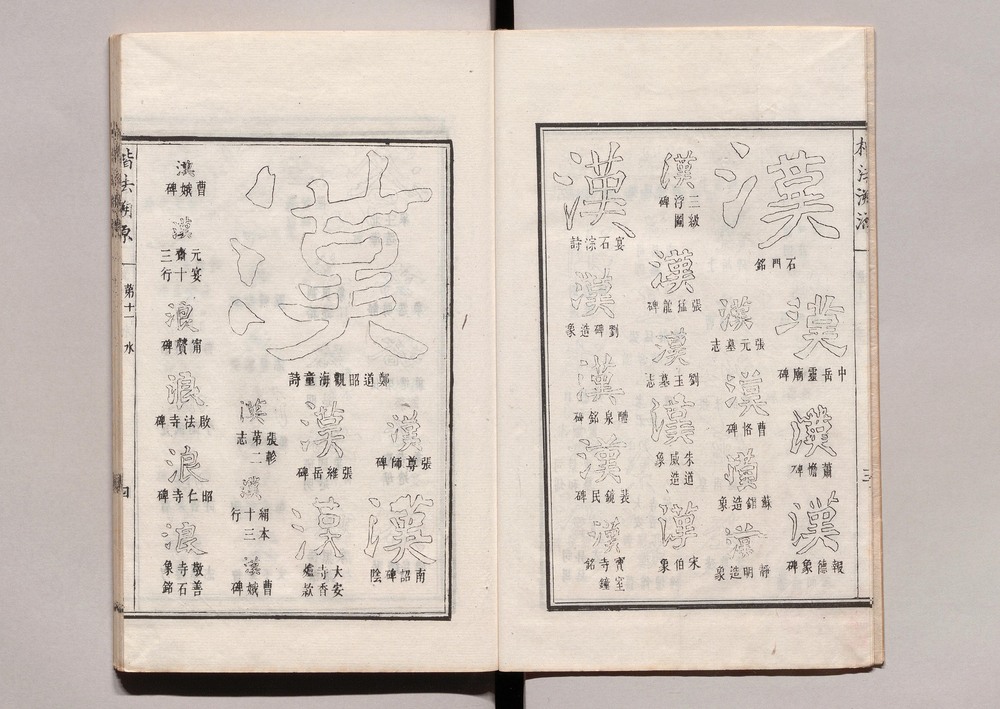 楷法溯源
三
漢
石門銘
漢
中岳靈廟碑
漢
蕭憺碑
漢
報德象碑
漢
張元墓志
漢
曹恪碑
漢
蘇錦造象
漢
靜明造象
漢
二級浮圖碑
漢
張猛龍碑
漢
劉玉墓志
漢
朱道威造象
漢
宋伯象
漢
宴石淙詩
漢
劉碑造象
漢
醴泉銘碑
漢
裴鏡民碑
漢
寶室寺鐘銘
漢
鄭道昭觀海童詩
漢
張尊師碑
漢
南詔碑陰
漢
張維岳碑
漢
大安寺香爐款
漢
張軫第二志
漢
絹本十三行
漢
曹娥碑
漢
曹娥碑
漢
元宴齋十三行
浪
甯贙碑
浪
啟法寺碑
浪
昭仁寺碑
浪
敬善寺石象銘
楷法溯源
第十一
水
四